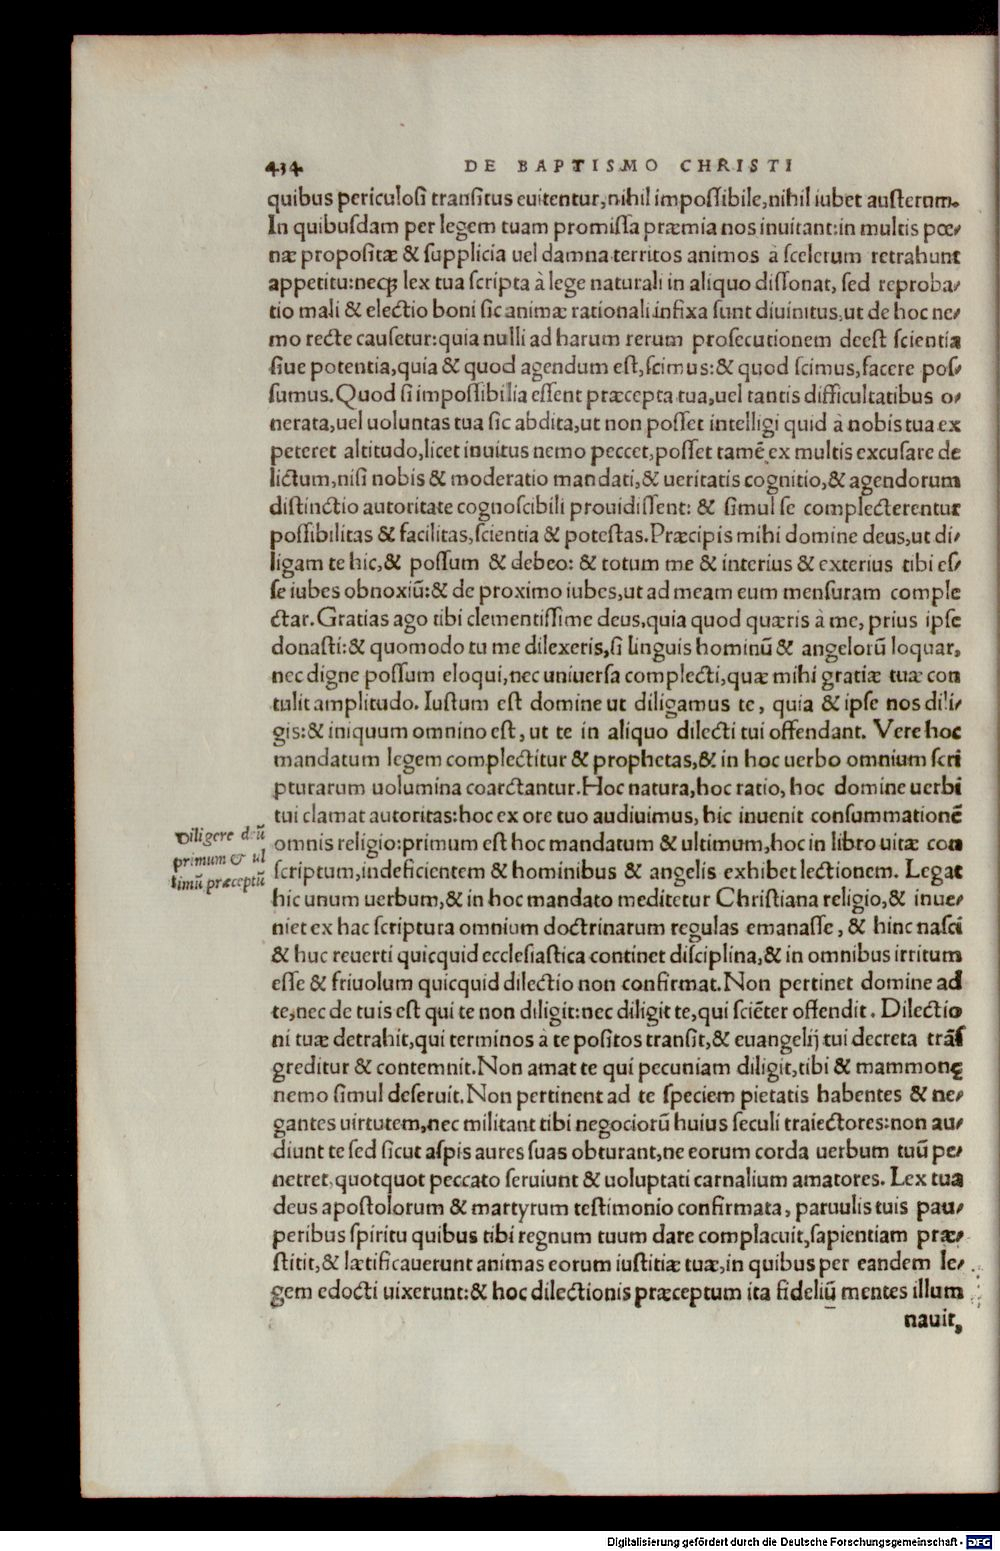 434 DE BAPTISMO CHRISTI
quibus periculosi transitus euitentur, nihil impossibile, nihil iubet austerum.
In quibusdam per legem tuam promissa præmia nos inuitant: in multis pœ⸗
næ propositæ & supplicia uel damna territos animos à scelerum retrahunt
appetitu: neqꝫ lex tua scripta à lege naturali in aliquo dissonat, sed reproba⸗
tio mali & electio boni sic animæ rationali infixa sunt diuinitus, ut de hoc ne⸗
mo recte causetur: quia nulli ad harum rerum prosecutionem deest scientia
siue potentia, quia & quod agendum est, scimus: & quod scimus, facere pos⸗
sumus. Quod si impossibilia essent præcepta tua, uel tantis difficultatibus o⸗
nerata, uel uoluntas tua sic abdita, ut non posset intelligi quid à nobis tua ex
peteret altitudo, licet inuitus nemo peccet, posset tamē ex multis excusare de
lictum, nisi nobis & moderatio mandati, & ueritatis cognitio, & agendorum
distinctio autoritate cognoscibili prouidissent: & simul se complecterentur
possibilitas & facilitas, scientia & potestas. Præcipis mihi domine deus, ut di⸗
ligam te hic, & possum & debeo: & totum me & interius & exterius tibi es⸗
se iubes obnoxiū: & de proximo iubes, ut ad meam eum mensuram comple
ctar. Gratias ago tibi clementissime deus, quia quod quæris à me, prius ipse
donasti: & quomodo tu me dilexeris, si linguis hominū & angelorū loquar,
nec digne possum eloqui, nec uniuersa complecti, quæ mihi gratiæ tuæ con
tulit amplitudo. Iustum est domine ut diligamus te, quia & ipse nos dili⸗
gis: & iniquum omnino est, ut te in aliquo dilecti tui offendant. Vere hoc
mandatum legem complectitur & prophetas, & in hoc uerbo omnium scri
pturarum uolumina coarctantur. Hoc natura, hoc ratio, hoc domine uerbi
tui clamat autoritas: hoc ex ore tuo audiuimus, hic inuenit consummationē
Diligere deū
primum & ul
timū præceptū
omnis religio: primum est hoc mandatum & ultimum, hoc in libro uitæ con
scriptum, indeficientem & hominibus & angelis exhibet lectionem. Legat
hic unum uerbum, & in hoc mandato meditetur Christiana religio, & inue⸗
niet ex hac scriptura omnium doctrinarum regulas emanasse, & hinc nasci
& huc reuerti quicquid ecclesiastica continet disciplina, & in omnibus irritum
esse & friuolum quicquid dilectio non confirmat. Non pertinet domine ad
te, nec de tuis est qui te non diligit: nec diligit te, qui sciēter offendit. Dilectio
ni tuæ detrahit, qui terminos à te positos transit, & euangelij tui decreta trās
greditur & contemnit. Non amat te qui pecuniam diligit, tibi & mammonę
nemo simul deseruit. Non pertinent ad te speciem pietatis habentes & ne⸗
gantes uirtutem, nec militant tibi negociorū huius seculi traiectores: non au⸗
diunt te sed sicut aspis aures suas obturant, ne eorum corda uerbum tuū pe⸗
netret, quotquot peccato seruiunt & uoluptati carnalium amatores. Lex tua
deus apostolorum & martyrum testimonio confirmata, paruulis tuis pau⸗
peribus spiritu quibus tibi regnum tuum dare complacuit, sapientiam præ⸗
stitit, & lætificauerunt animas eorum iustitiæ tuæ, in quibus per eandem le⸗
gem edocti uixerunt: & hoc dilectionis præceptum ita fideliū mentes illum
nauit,
Digitalisierung gefördert durch die Deutsche Forschungsgemeinschaft - DFG